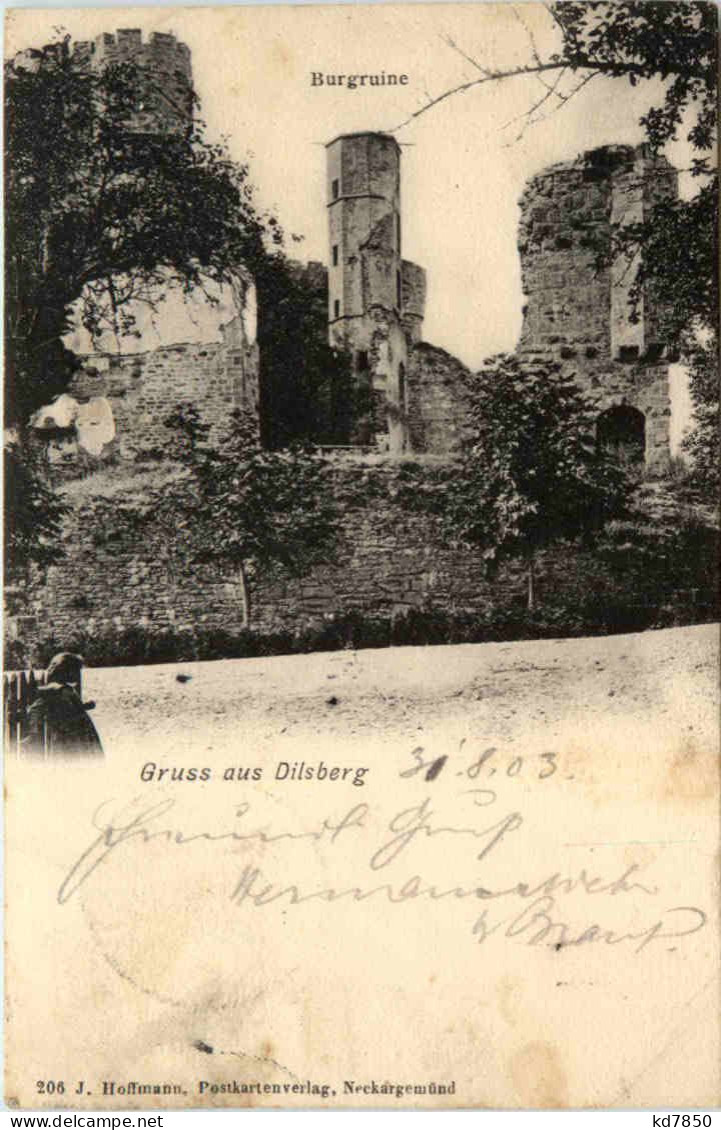 Burgruine
Gruss aus Dilsberg 31.8.03.
Freundl. Gruß
u Braut
206 J. Hoffmann, Postkartenverlag, Neckargemünd
kd7850